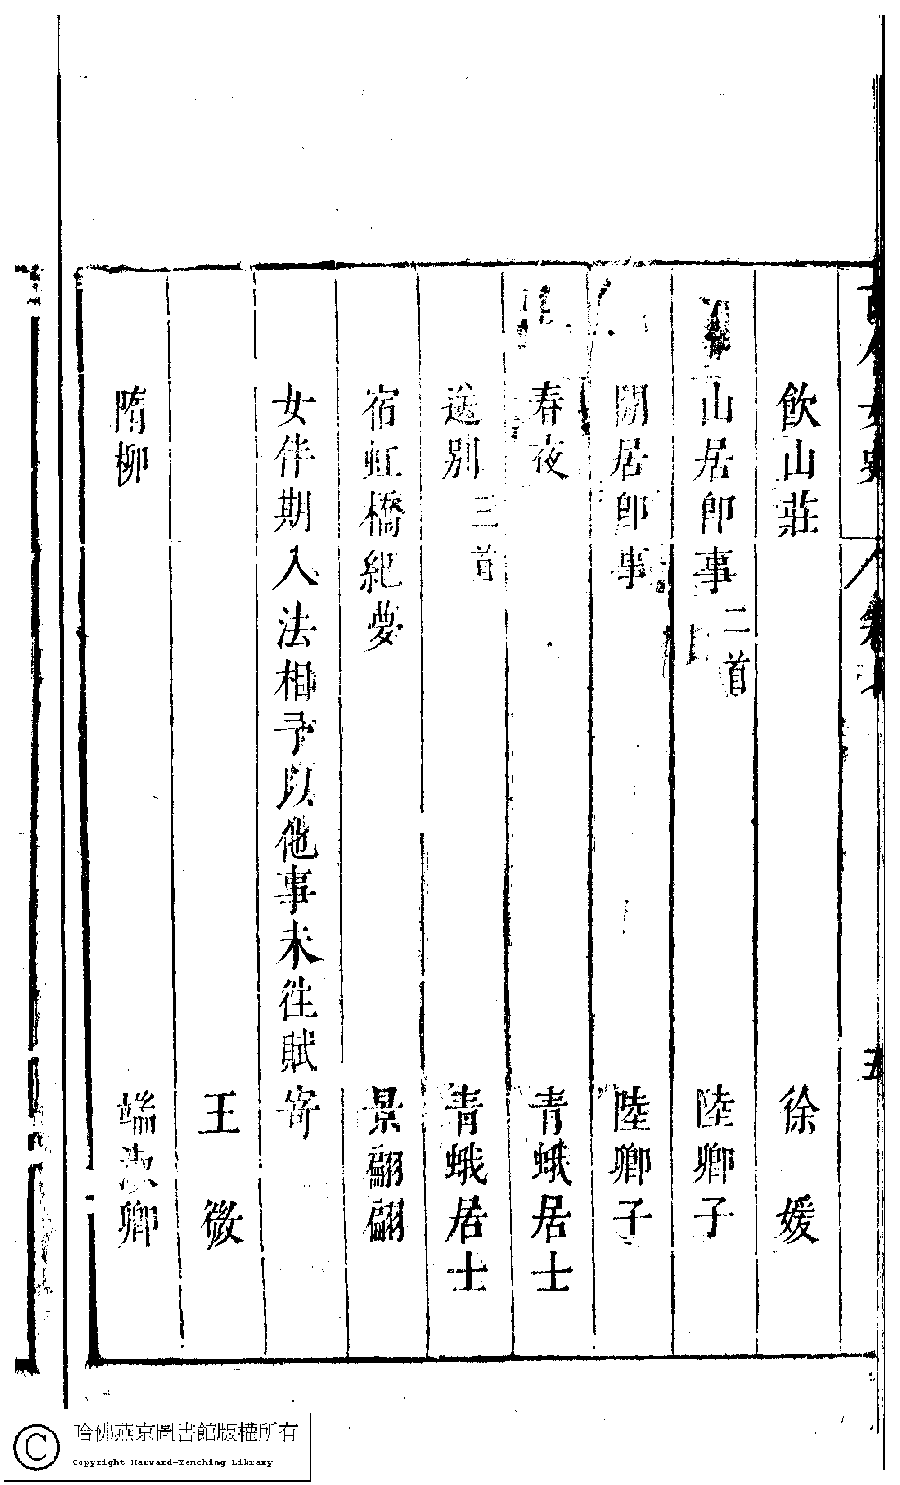 飲山莊 徐媛
山居即事二首 陸卿子
閒居即事 陸卿子
春夜 青蛾居士
送別三首 青蛾居士
宿虹橋紀夢 景翩翩
女伴期入法相予以他事未往賦寄
王微
隋柳 端淑卿
五
哈佛燕京圖書館版權所有
Copyright Harvard-Yenching Library